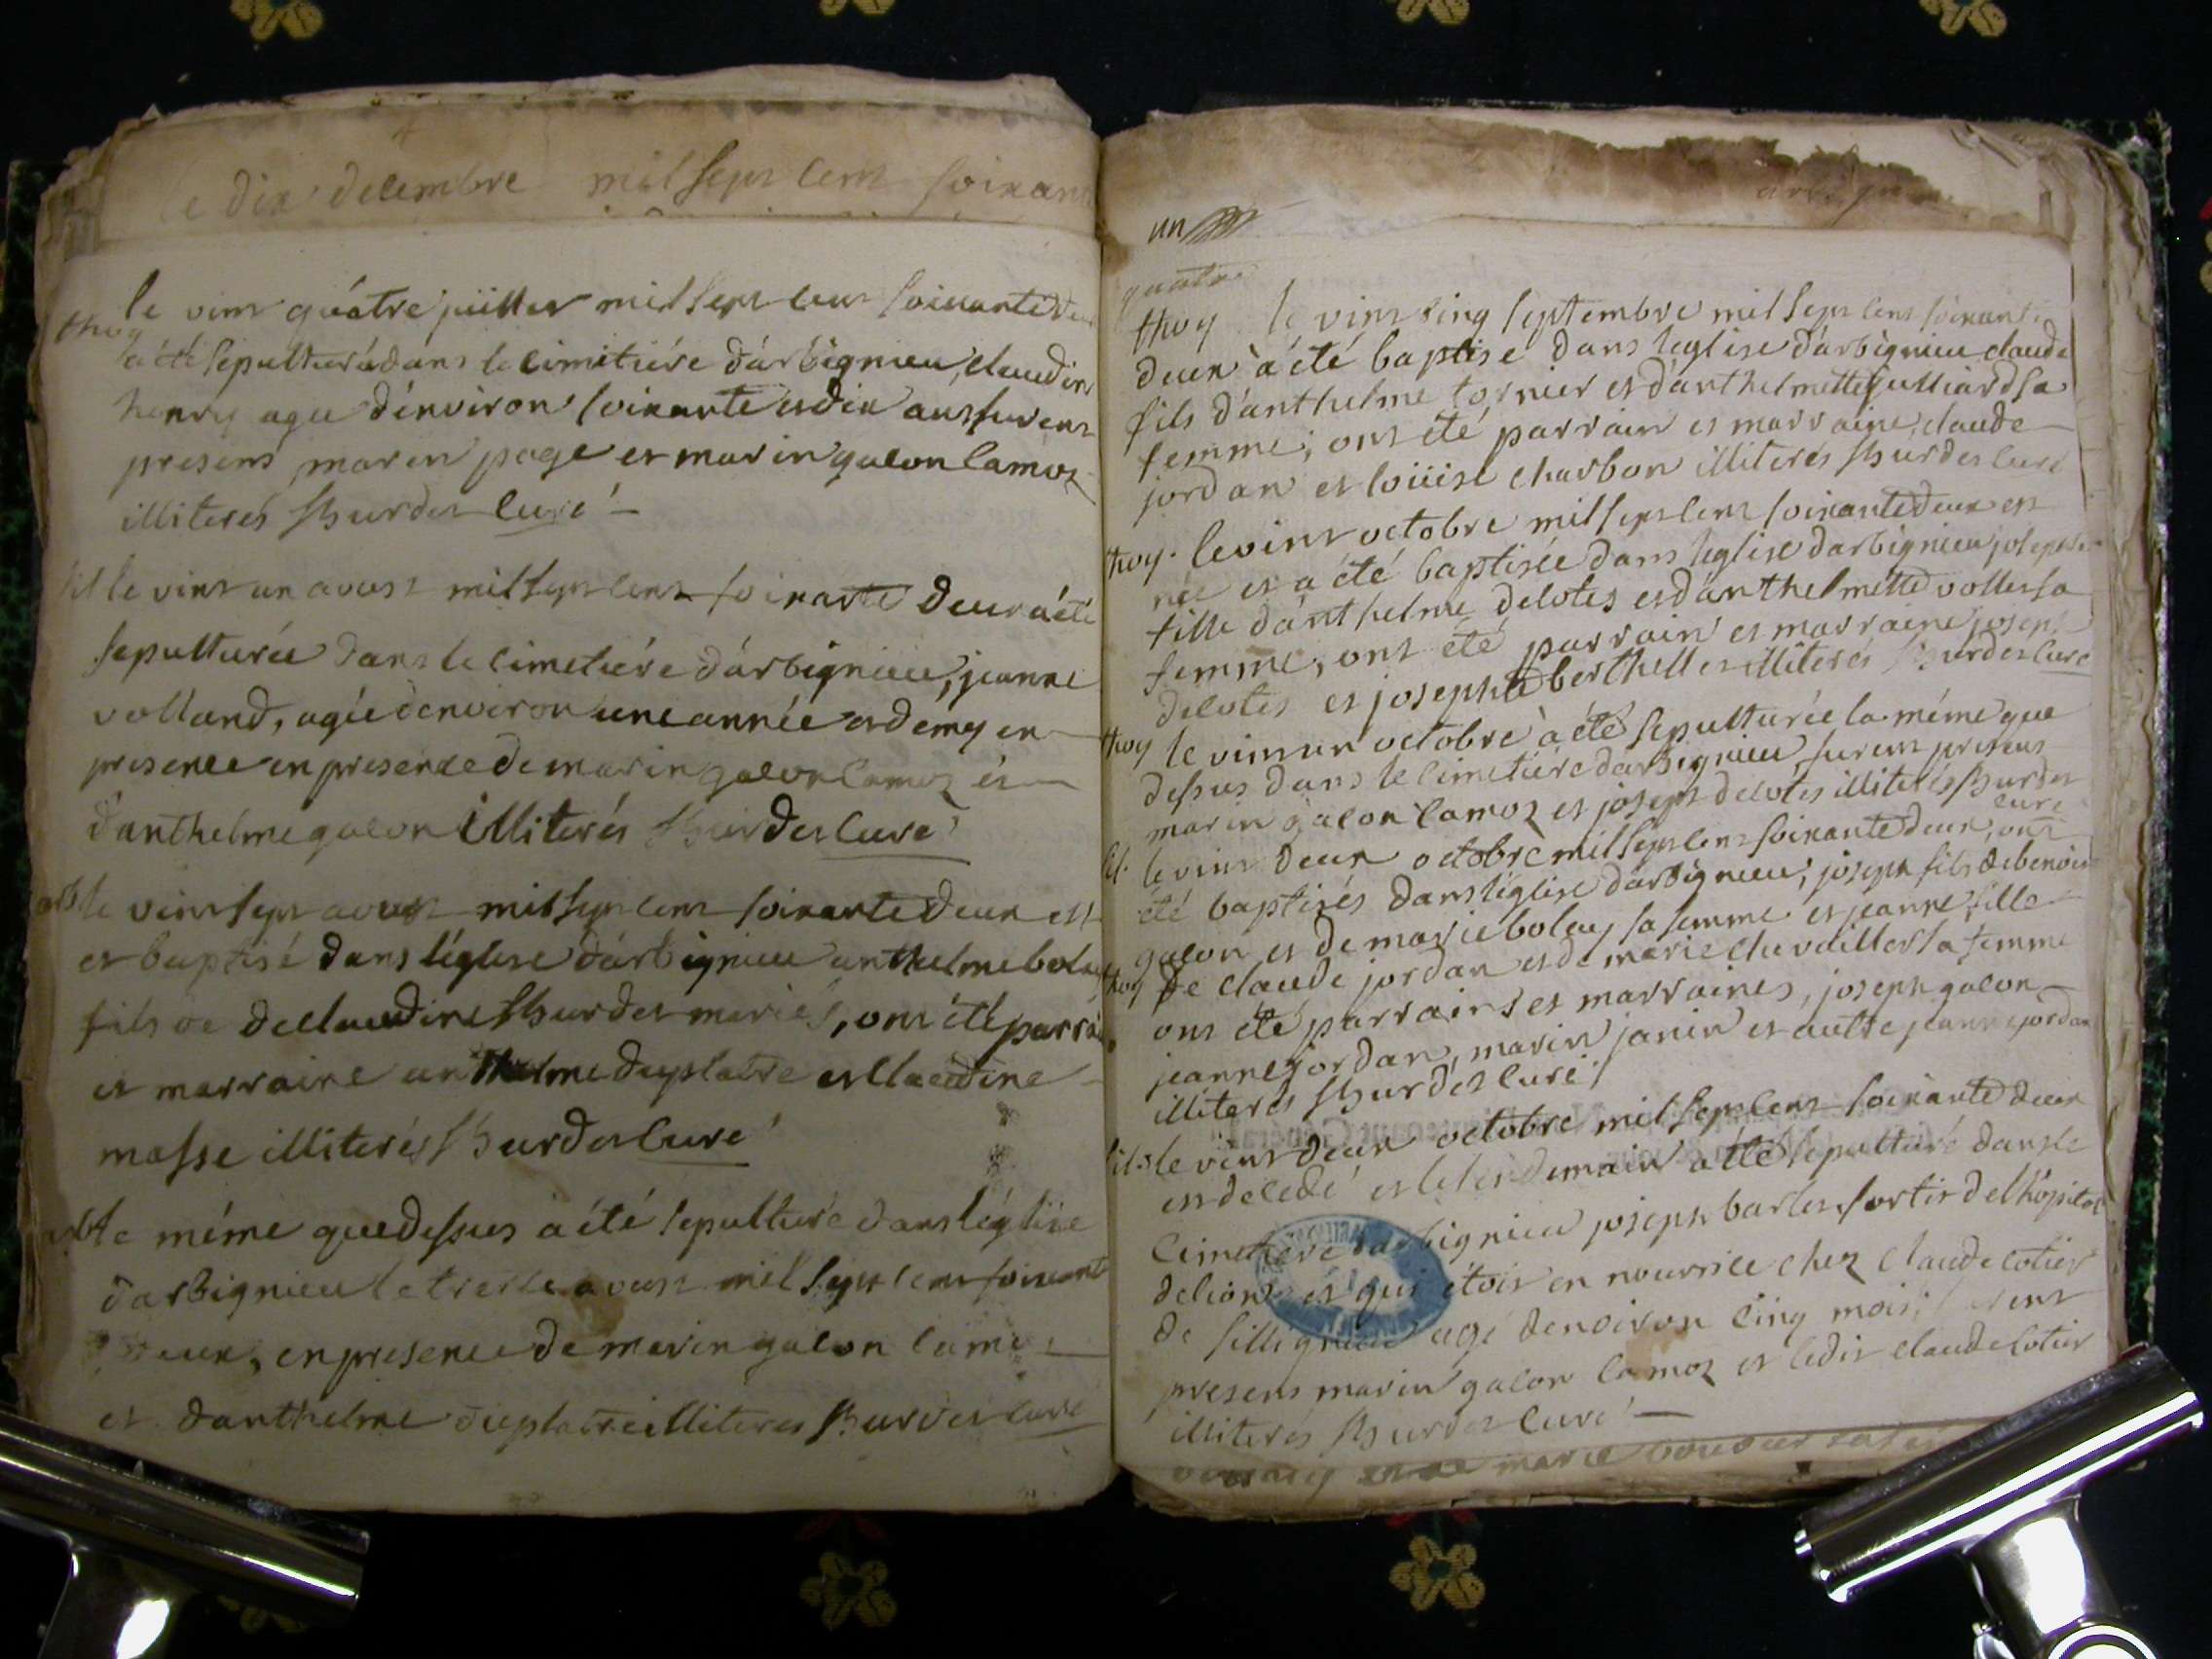 le dix decembre mil sept cent soixant
thoy
le vint quátre juillet mil sept cent soixante deu
a été sepulturé dans le cimitiére dárbignieu, claudine
henry agee dénviron soixante et dix ans furent
presens marin page et marin galon lamoz
illiterés Hurdet curé
sil le vint un avust mil sept cent soixante deux a été
sepulturée dans le cimetiére dárbignieu, jeanne
volland, agée denviron une année et demy en
presence en presence de marin galon lamoz et
danthelme galon illiterés Hurdet curé
arb le vint sept avust mil sept cent soixante deux est
et baptisé dans léglise dárbignieu anthelme bolay
fils de declaudine Hurdet mariés, ont été parrai
et marraine anthelme duplatre et claudine
masse illiterés Hurdet curé
arb le méme que dessus a été sepulturé dans léglise
darbignieu le trente avust mil sept cent soixant
deux, en presence de marin galon lamoz
et danthelme duplatre illiteres Hurdet curé
arbignieu
un
quatre
thoy le vint cinq septembre mil sept cent soixante
deux a été baptisé dans leglise dárbignieu claude
fils dánthelme tornier et dánthelmette julliard sa
femme; ont été parrain et marraine, claude
jordan et loüise charbon illiterés Hurdet curé
thoy. le vint octobre mil sept cent soixante deux est
née et a été baptisée dans leglise darbignieu josephte
fille dánthelme delotes et dánthelmette vollet sa
femme, ont été parrain et marraine joseph
delotes et josephte berthellet illiterés Hurdet curé
thoy le vint un octobre à été sepulturée la méme que
dessus dans le cimetiére darbignieu, furent presens
marin galon lamoz et joseph delotes illiterés Hurdet
curé
sil. le vint deux octobre mil sept cent soixante deux, ont
été baptisés dans léglise dárbignieu, joseph fils de benoit
galon et de marie bolay sa femme et jeanne fille
thoy de claude jordan et de marie chevaillet sa femme
ont été parrains et marraines, joseph galon
jeanne jordan, marin janin et autre jeanne jordan
illiterés Hurdet curé
sil. le vint deux octobre mil sept cent soixante deux
est decedé et le lendemain a été sepulturé dans le
cimetiére darbignieu joseph barlet sortir de lhôpital
de lion et qui étoit en nourrice chez claude cotier
de sillignieu agé denviron cinq mois; furent
presens marin galon lamoz et ledit claude cotier
illiterés Hurdet curé
marie